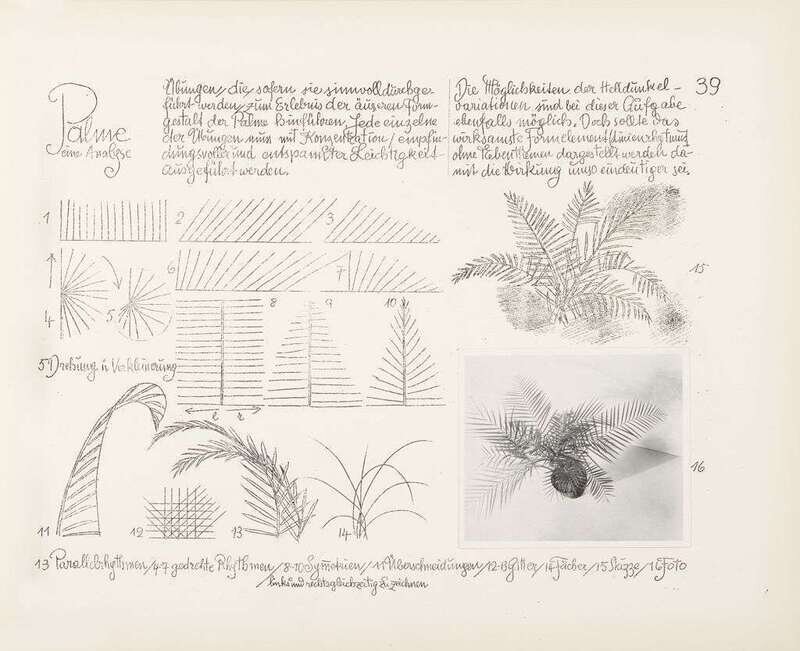 Palme
eine Analyse
Übungen, die sofern sie sinnvoll durchge-
führt werden, zum Erlebnis der äußeren Form-
gestalt der Palme hinführen. Jede einzelne
der Übungen muss mit Konzentration/empfin-
dungsvoller und entspannter Leichtigkeit
ausgeführt werden.
Die Möglichkeiten der Helldunkel-
variationen sind bei dieser Aufgabe
ebenfalls möglich. Doch sollte das
wirksamste Formelement Linienrhythmus
ohne Nebenthemen dargestellt werden da-
mit die Wirkung umso eindeutiger sei.
39
1
2
3
4
5
6
7
5) Drehung u Verkleinerung
8
9
10
l r
11
12
13
14
15
16
13 Parallelrhythmen/4-7 gedrehte Rhythmen/8-10 Symmetrien/11 Überschneidungen/12-13 Gitter/14 Fächer/15 Skizze/16 Foto
links und rechts gleichzeitig zu zeichnen